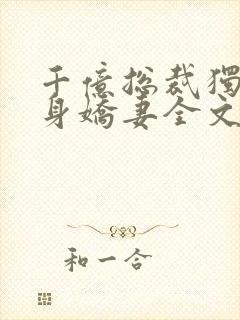 千億總裁獨
身嬌妻全文
和一合